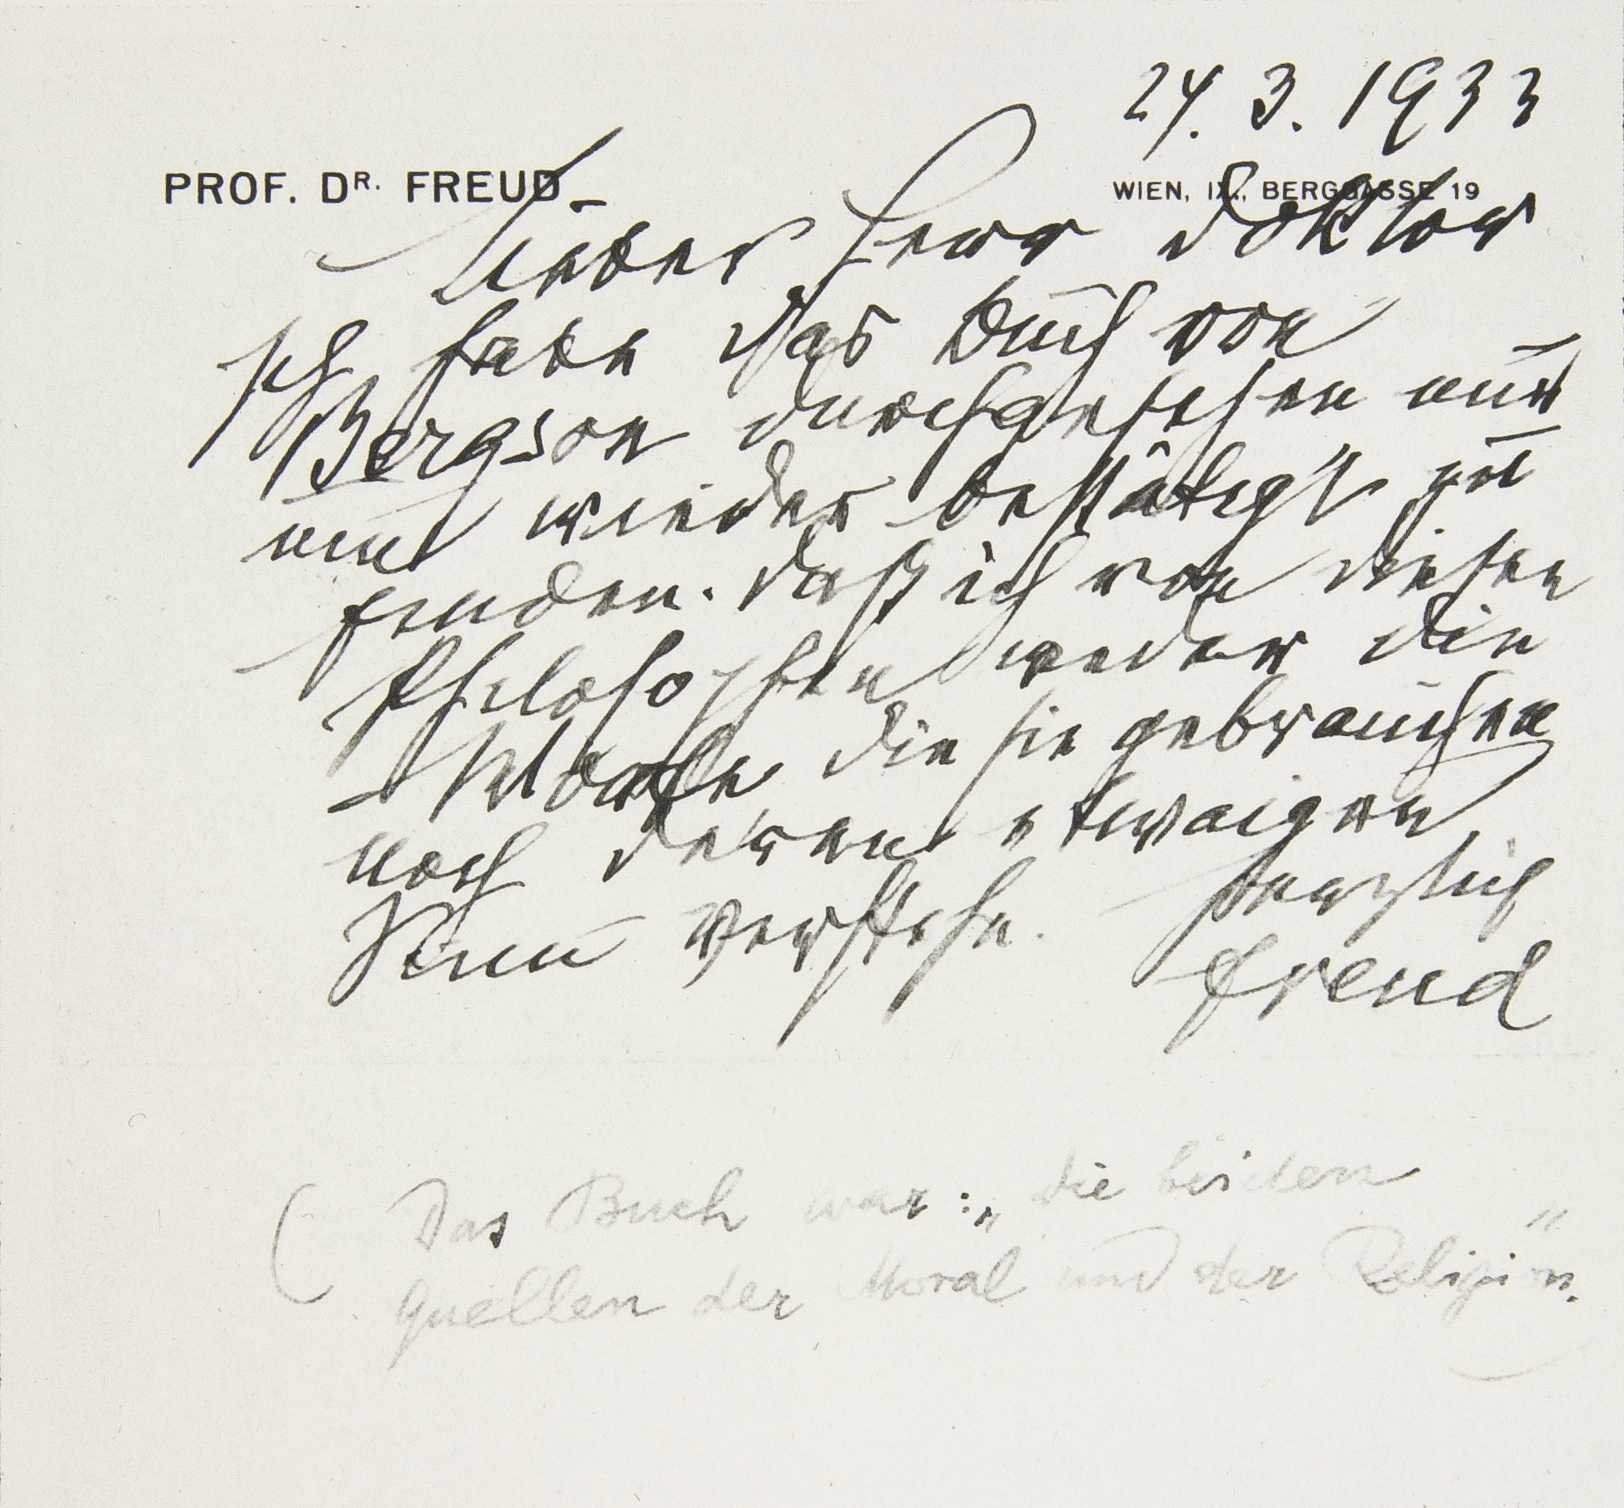 24. 3. 1933
PROF. DR. FREUD
WIEN, IX., BERGGASSE 19
Lieber Herr Doktor
Ich habe das Buch von
Bergson durchgesehen nur
um wieder bestätigt zu
finden. daß ich von diesen
Philosophen weder die
Worte die sie gebrauchen
noch deren etwaigen
Sinn verstehe. Herzlich
Freud
( Das Buch war: „die beiden
Quellen der Moral und der Religion." )